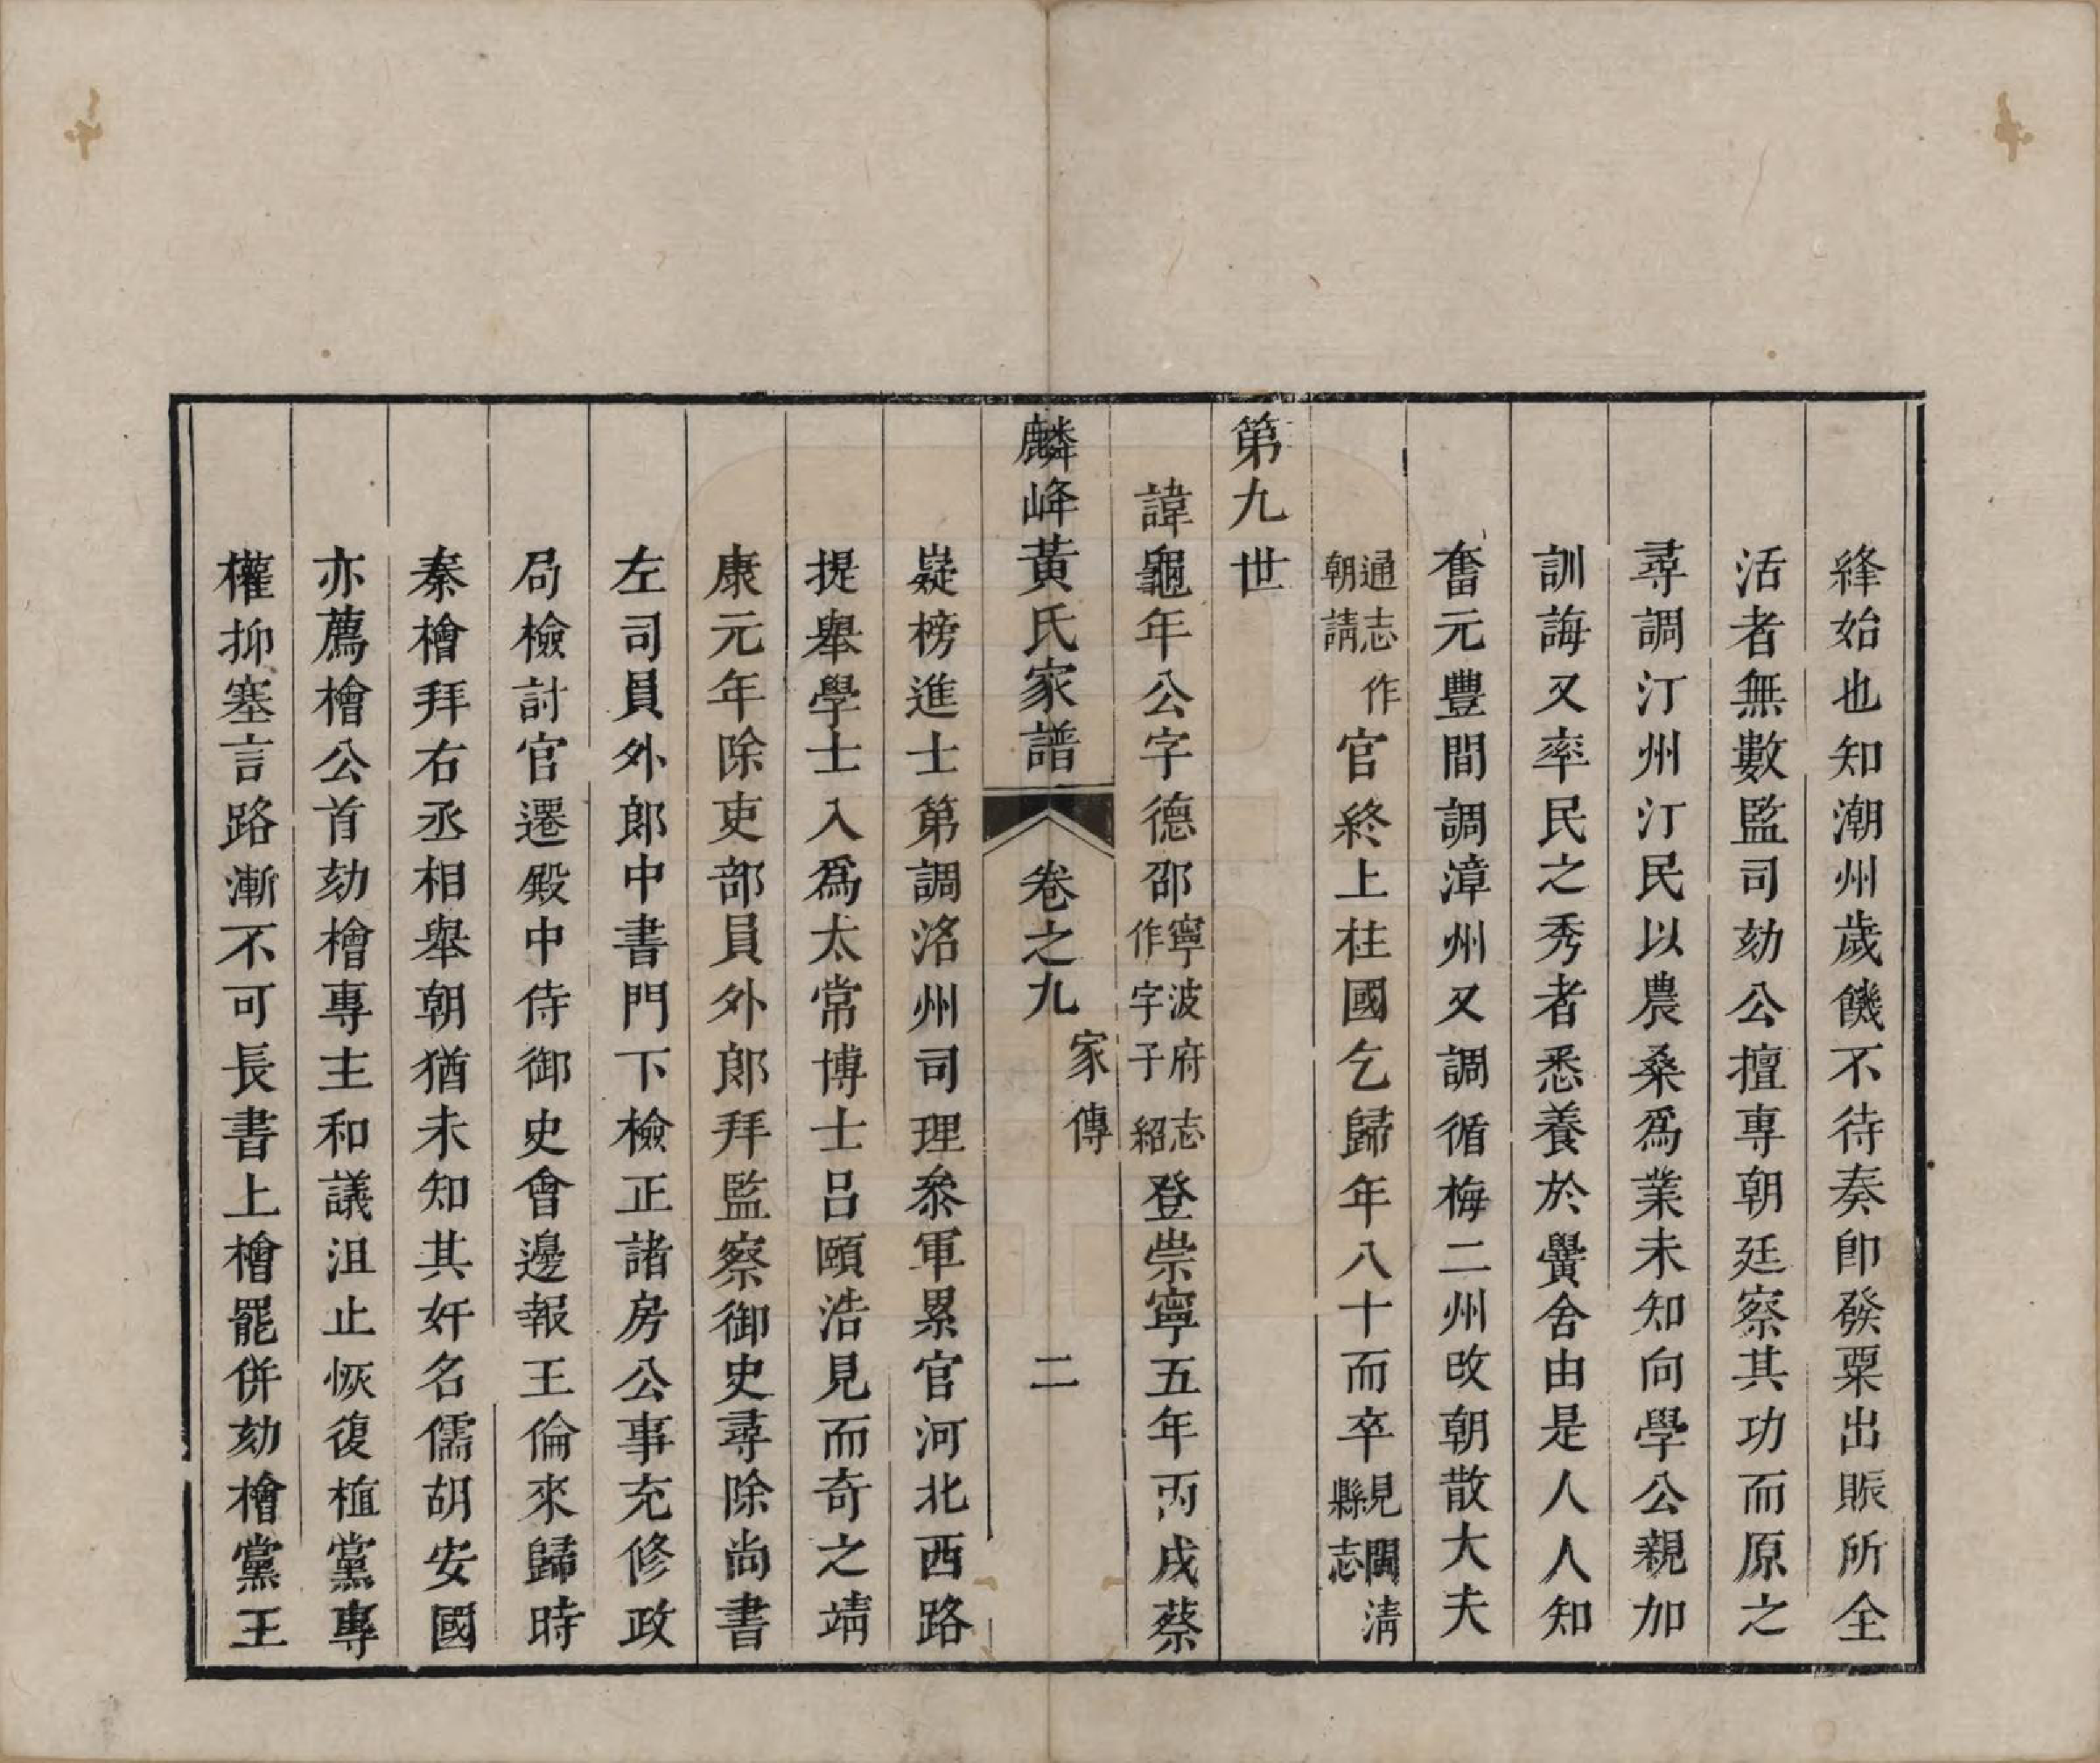 絳始也知潮州歲饑不待奏卽發粟出賑所全
活者無數監司劾公擅專朝廷察其功而原之
尋調汀州汀民以農桑爲業未知向學公親加
訓誨又率民之秀者悉養於黌舍由是人人知
奮元豐間調漳州又調循梅二州改朝散大夫
通志作朝請官終上柱國乞歸年八十而卒見閩淸縣志
第九世
諱龜年公字德邵寧波府志作字子紹登崇寧五年丙戌蔡
麟峰黃氏家譜 卷之九 家傳 二
嶷榜進士第調洺州司理叅軍累官河北西路
提舉學士入爲太常博士呂頤浩見而奇之靖
康元年除吏部員外郎拜監察御史尋除尙書
左司員外郎中書門下檢正諸房公事充修政
局檢討官遷殿中侍御史會邊報王倫來歸時
秦檜拜右丞相舉朝猶未知其奸名儒胡安國
亦薦檜公首劾檜專主和議沮止恢復植黨專
權抑塞言路漸不可長書上檜罷併劾檜黨王